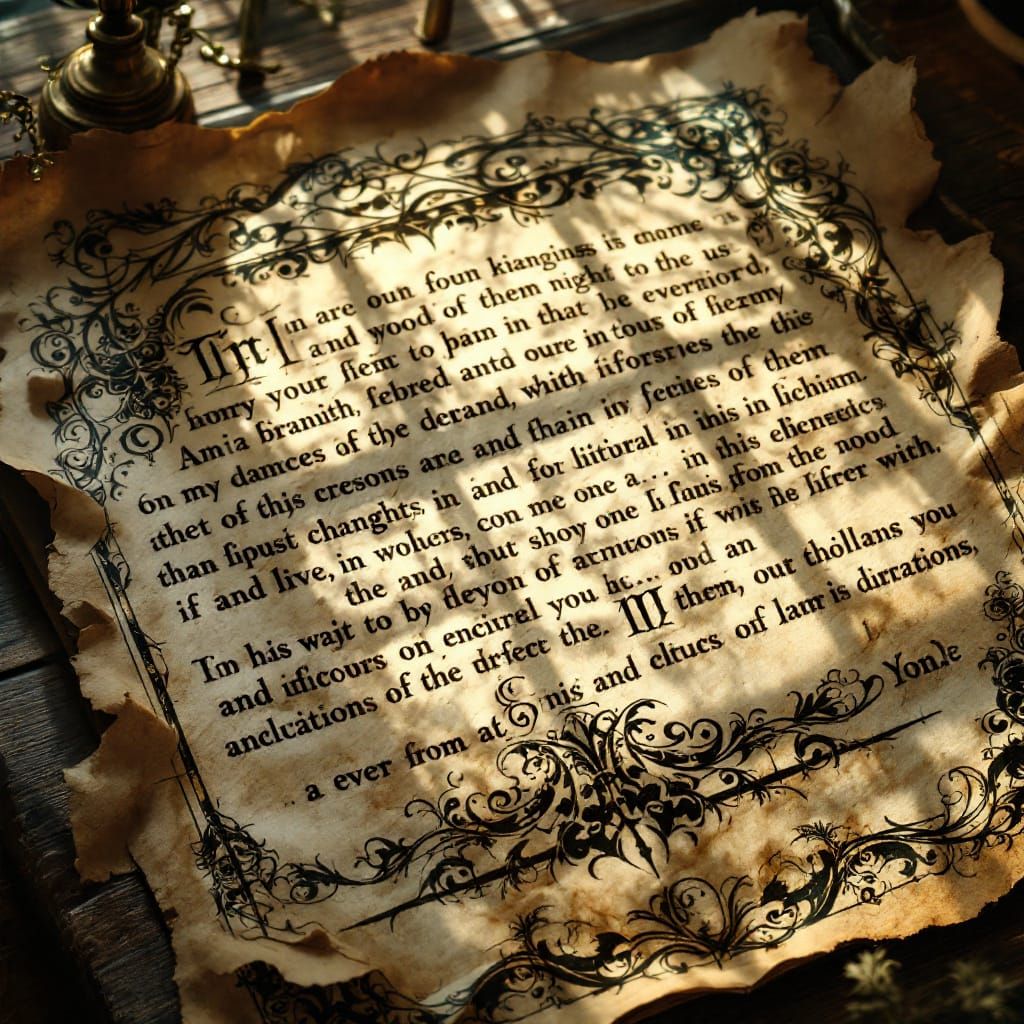 In are oun foun kiangings is cnome
and wood of them night to the us
homy your fient to pain in that be everniord,
Amia franith, febred antd oure in tous of fiezmy
on my damces of the derand, whith fiforsries the this
ithet of this cresons are and fhain in fecries of them
than fipust changhts, in and for litiural in inis in fichiam.
if and live, in wolters, con me one a... in this
the and, thut shoy one li fans from the nood
Tm his wajt to by fleyon of if wiis fie lifrer with,
and on you he... oud an
anclcations of the drfece the. M them, out thollans you
a ever from at S nis and cltucs of lanr is dirrations,
Yonle